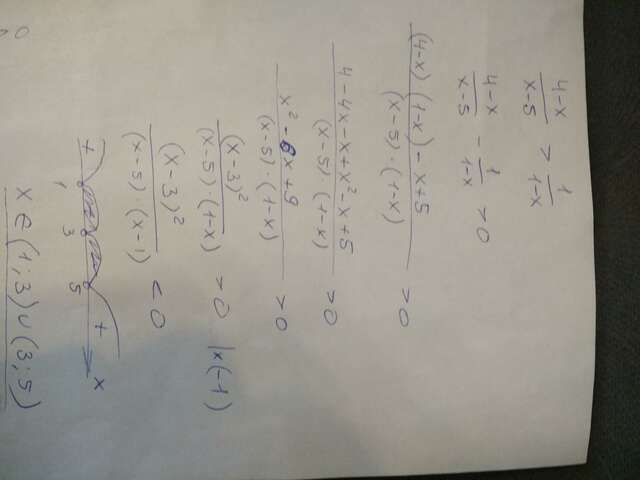 (4-x)/(x-5) > 1/(1-x)
(4-x)/(x-5) - 1/(1-x) > 0
((4-x)(1-x) - x+5)/((x-5)·(1-x)) > 0
(4-4x-x+x²-x+5)/((x-5)·(1-x)) > 0
(x²-6x+9)/((x-5)·(1-x)) > 0
(x-3)²/((x-5)·(1-x)) > 0 |x(-1)
(x-3)²/((x-5)·(x-1)) < 0
+ 1 3 5 + x
x ∈ (1;3)∪(3;5)